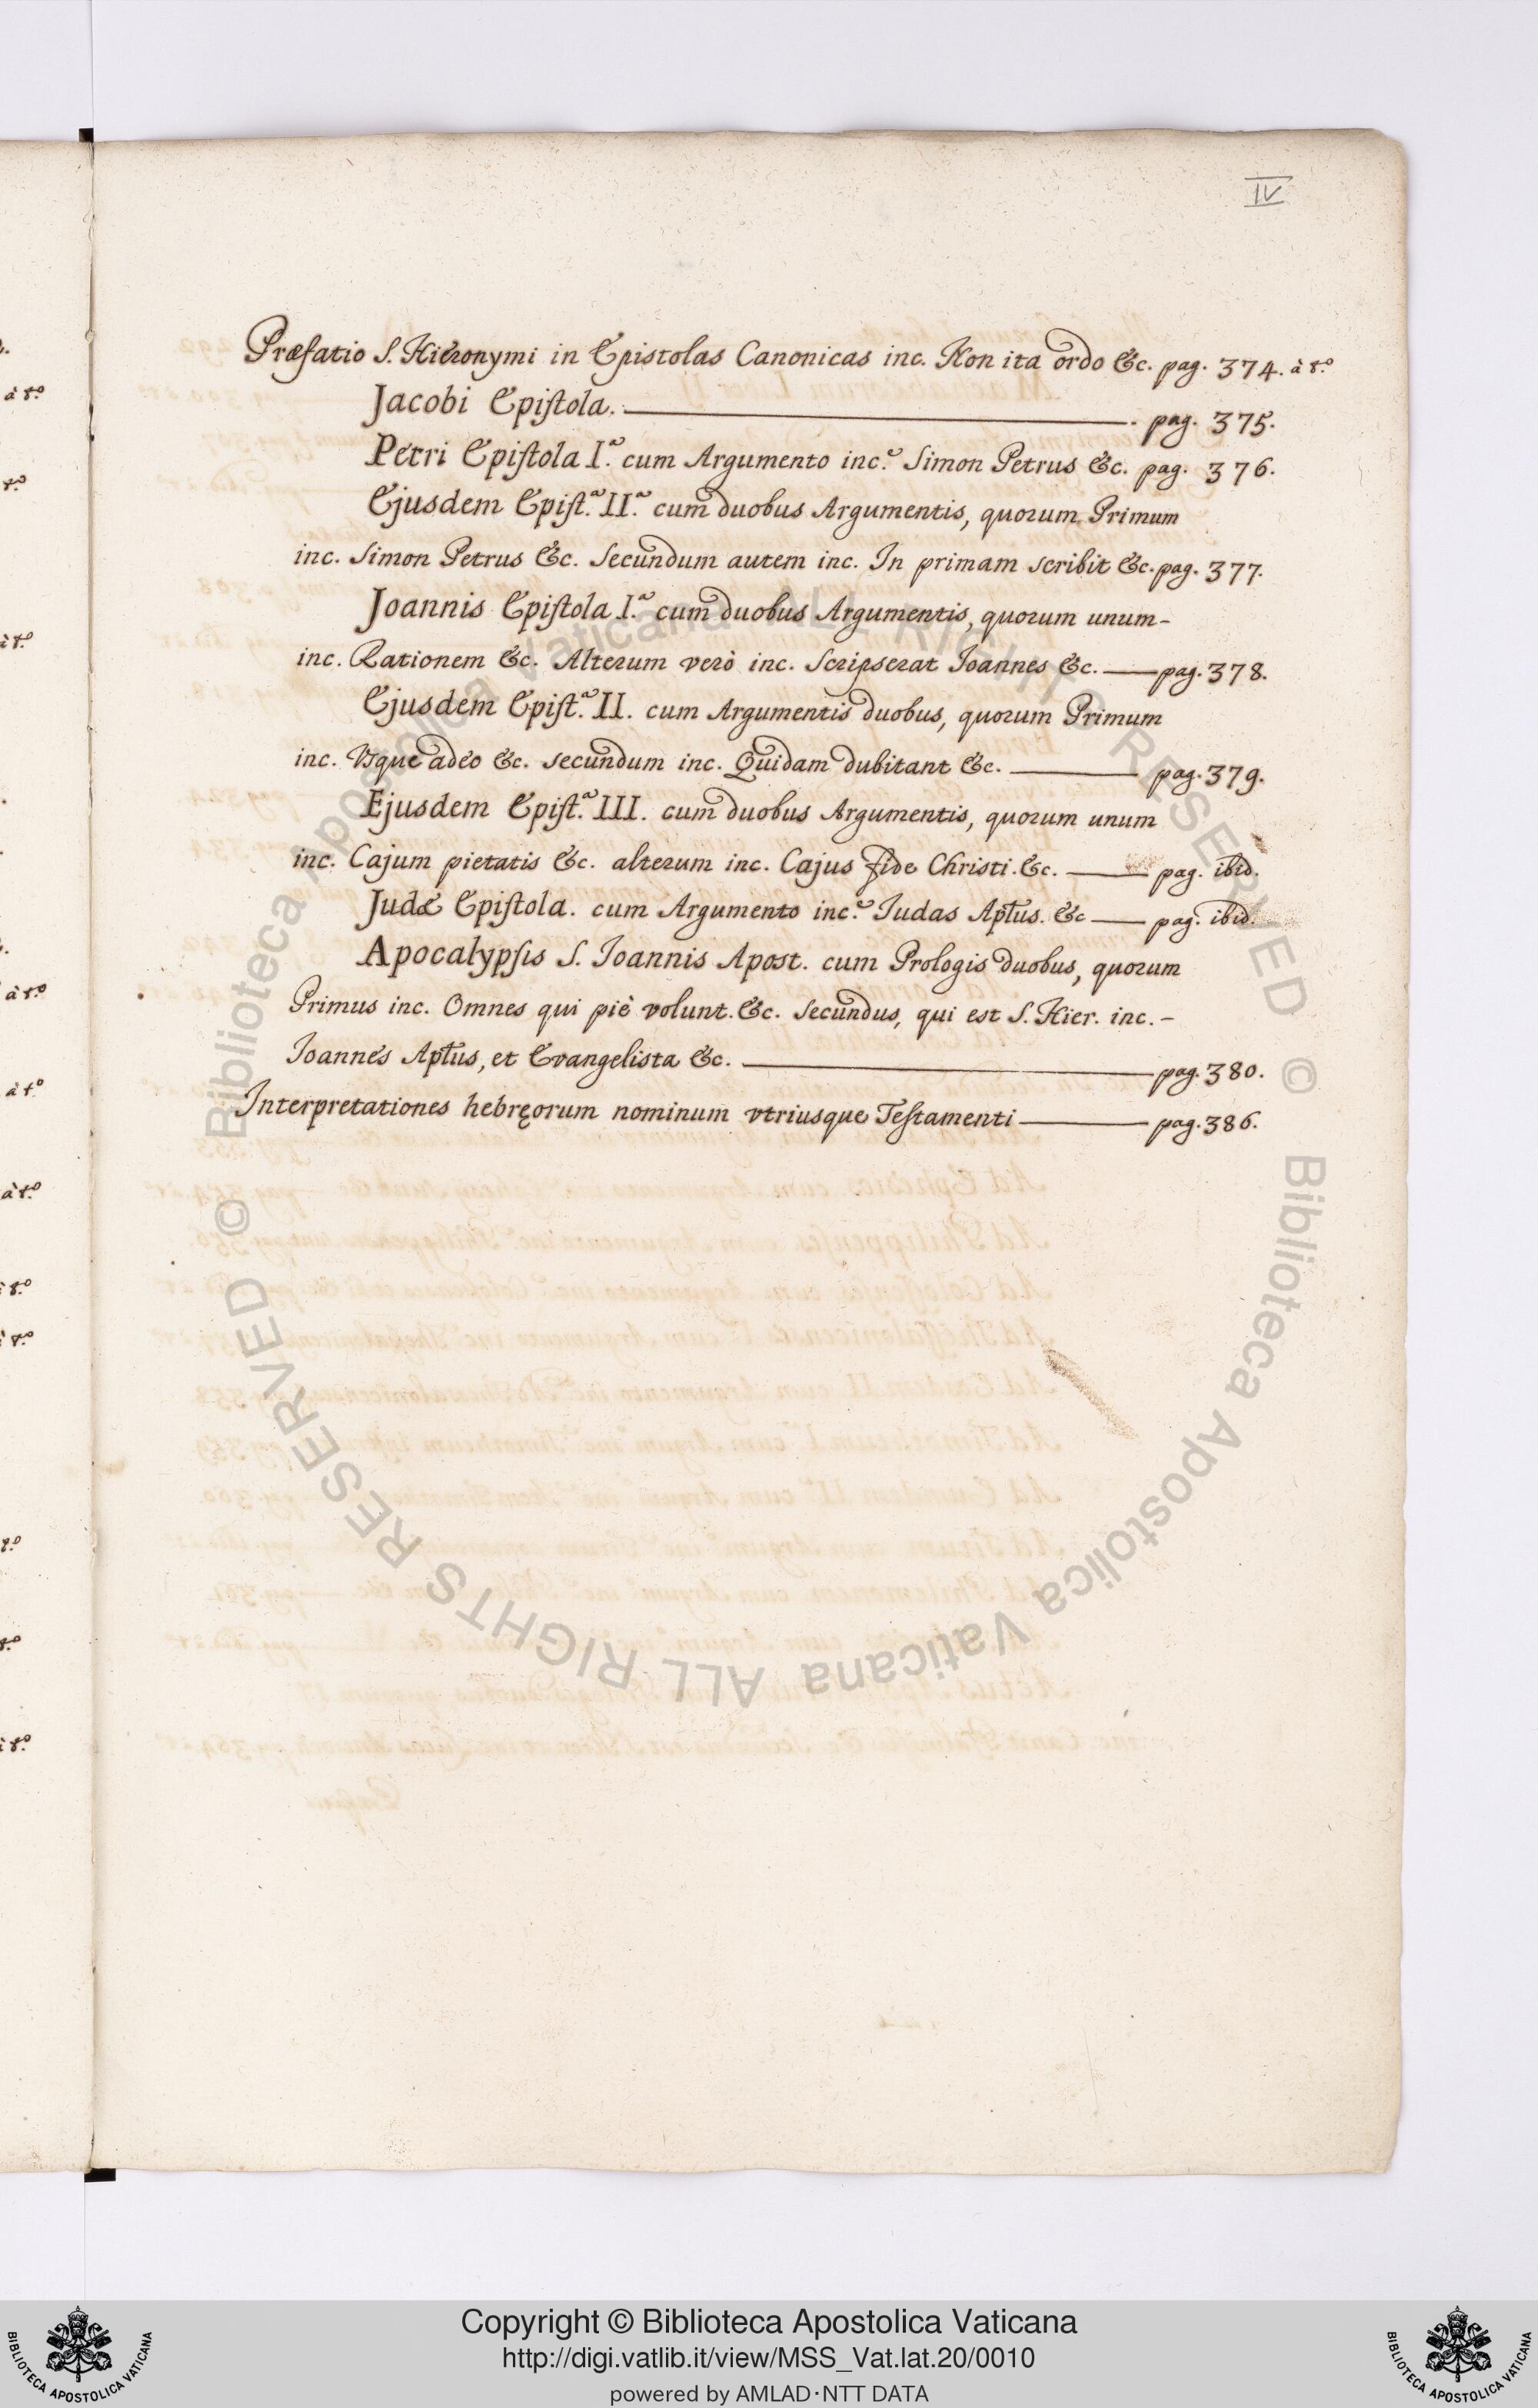 IV
Præfatio S. Hieronymi in Epistolas Canonicas inc. Non ita ordo &c. pag. 374. à t.º
Jacobi Epistola. pag. 375.
Petri Epistola I.ª cum Argumento inc.ᵉ Simon Petrus &c. pag. 376.
Ejusdem Epist.ª II.ª cum duobus Argumentis, quorum Primum
inc. Simon Petrus &c. Secundum autem inc. In primam scribit &c. pag. 377.
Joannis Epistola I.ª cum duobus Argumentis, quorum unum-
inc. Rationem &c. Alterum verò inc. Scripserat Joannes &c. — pag. 378.
Ejusdem Epist.ª II. cum Argumentis duobus, quorum Primum
inc. Vsque adeo &c. secundum inc. Quidam dubitant &c. — pag. 379.
Ejusdem Epist.ª III. cum duobus Argumentis, quorum unum
inc. Cajum pietatis &c. alterum inc. Cajus fide Christi. &c. — pag. ibid.
Judæ Epistola. cum Argumento inc.ᵉ Iudas Aptus. &c — pag. ibid.
Apocalypsis S. Ioannis Apost. cum Prologis duobus, quorum
Primus inc. Omnes qui piè volunt. &c. Secundus, qui est S. Hier. inc. -
Ioannes Aptus, et Evangelista &c. — pag. 380.
Interpretationes hebręorum nominum vtriusque Testamenti — pag. 386.
© Biblioteca Apostolica Vaticana ALL RIGHTS RESERVED
© Biblioteca Apostolica Vaticana ALL RIGHTS RESERVED
Copyright © Biblioteca Apostolica Vaticana
http://digi.vatlib.it/view/MSS_Vat.lat.20/0010
powered by AMLAD·NTT DATA
BIBLIOTECA APOSTOLICA VATICANA
BIBLIOTECA APOSTOLICA VATICANA